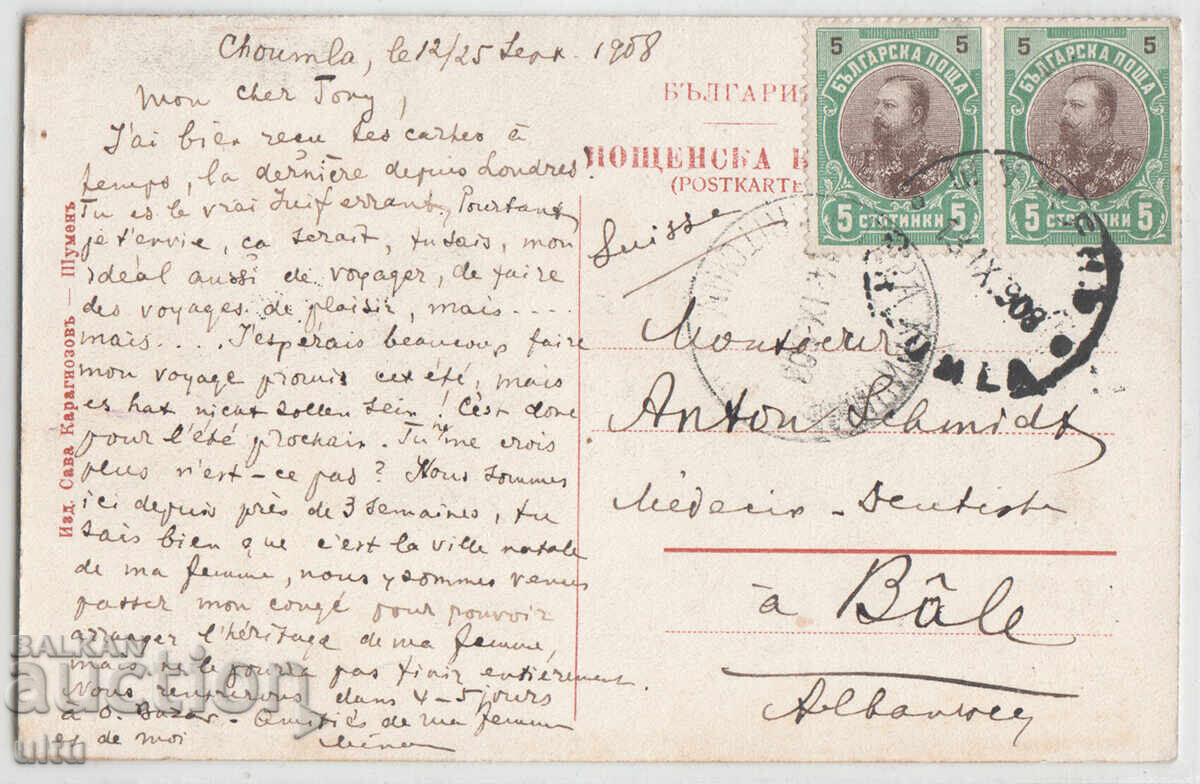 Choumla, le 12/25 Sept. 1908
Mon cher Tony,
J'ai bien reçu tes cartes à
temps, la dernière depuis Londres.
Tu es le vrai Juif errant. Pourtant
je t'envie, ça serait, tu sais, mon
idéal aussi de voyager, de faire
des voyages de plaisir, mais....
mais.... J'espérais beaucoup faire
mon voyage promis cet été, mais
es hat nicht sollen sein! C'est donc
pour l'été prochain. Tu ne me crois
plus n'est-ce pas? Nous sommes
ici depuis près de 3 semaines, tu
sais bien que c'est la ville natale
de ma femme, nous y sommes venus
passer mon congé pour pouvoir
arranger l'héritage de ma femme,
mais ne le pourra pas finir entièrement.
Nous rentrerons dans 4-5 jours
à O. Bazar. Amitiés de ma femme
et de moi
Изд. Сава Карагиозовъ — Шуменъ
БЪЛГАРИ
ПОЩЕНСКА К
(POSTKARTE
5 5
БЪЛГАРСКА ПОЩА
5 СТОТИНКИ 5
5 5
БЪЛГАРСКА ПОЩА
5 СТОТИНКИ 5
IX.908
Suisse
Monsieur
Anton Schmidt
Médecin-Dentiste
à Bâle
BALKAN
auction
ultu